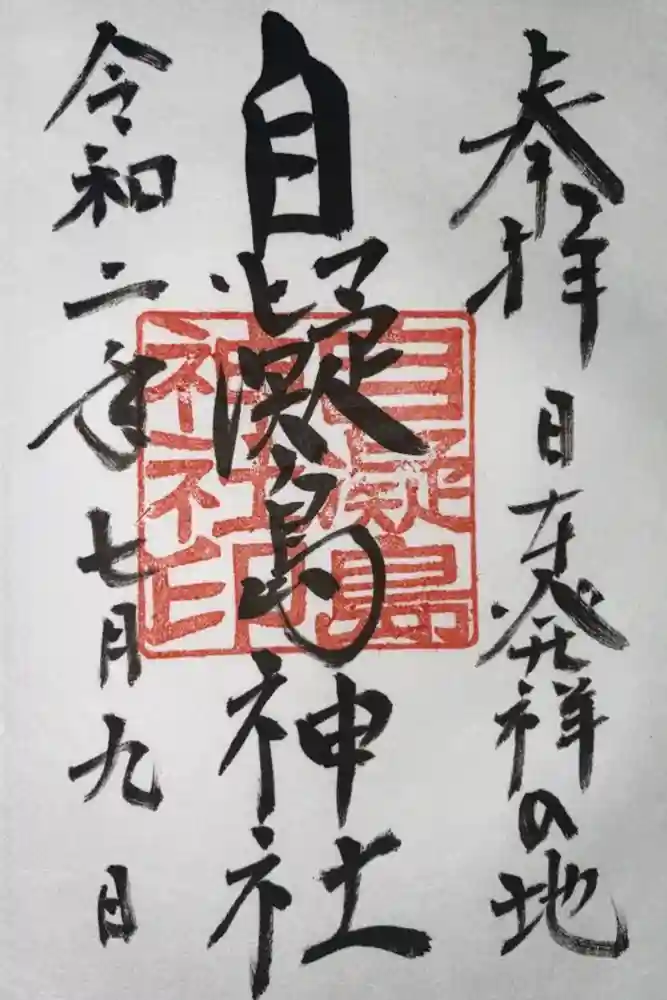 奉拝
日本発祥の地
自凝島神社
自凝島
神社印
令和二年七月九日